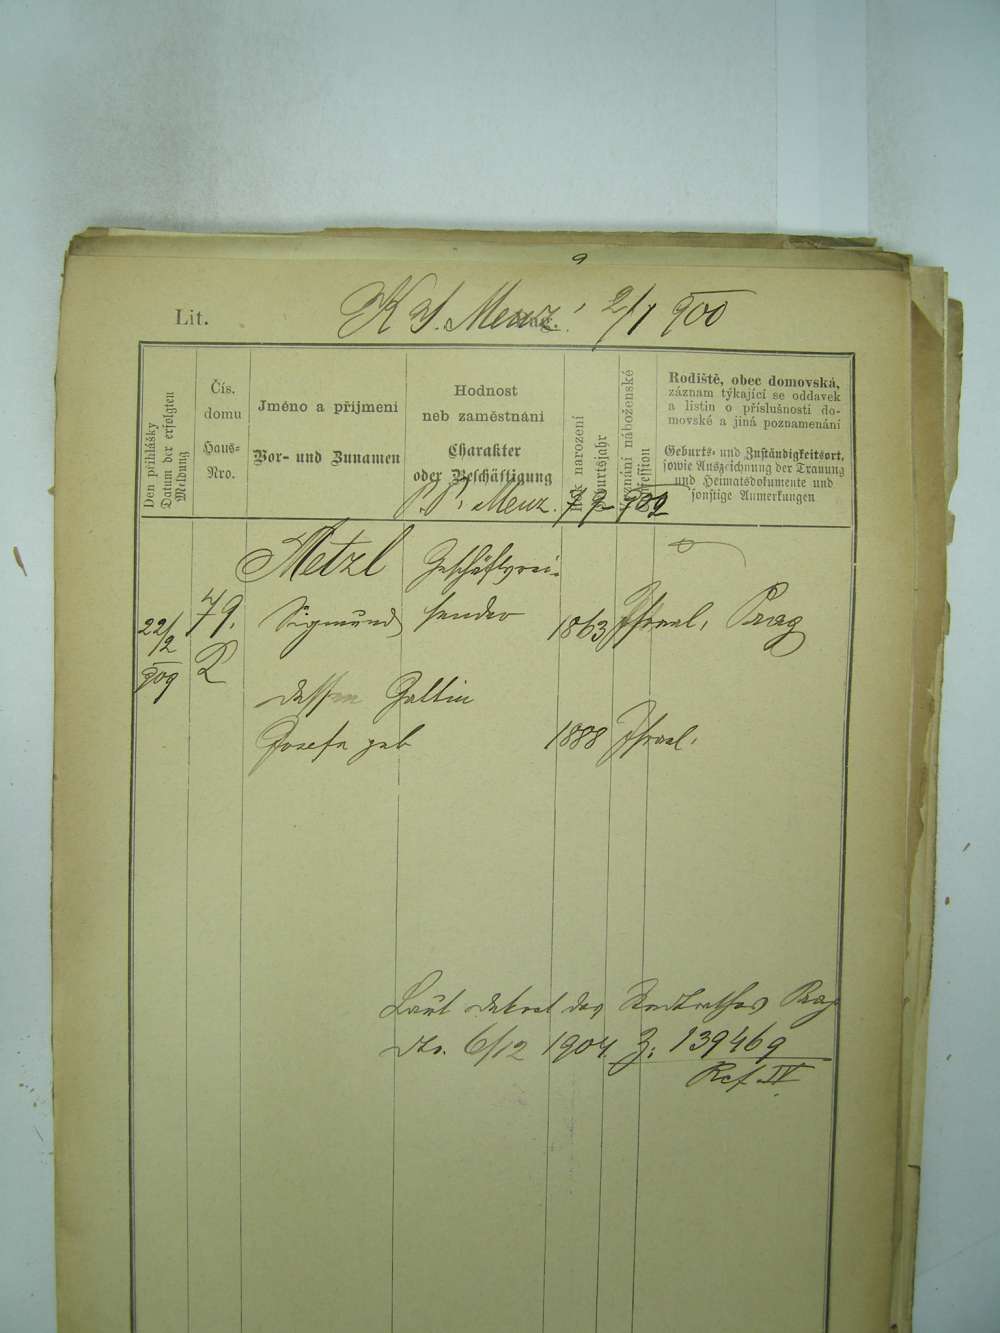 Lit. K S. Menz. 2/1 900
Den přihlášky
Datum der erfolgten
Meldung
Čís.
domu
Haus-
Nro.
Jméno a příjmení
Vor- und Zunamen
Hodnost
neb zaměstnání
Charakter
oder Beschäftigung
Rok narození
Geburtsjahr
Vyznání náboženské
Confession
Rodiště, obec domovská,
záznam týkající se oddavek
a listin o příslušnosti do-
movské a jiná poznamenání
Geburts- und Zuständigkeitsort,
sowie Auszeichnung der Trauung
und Heimatsdokumente und
sonstige Anmerkungen
Menz. 909
Metzl Geschäftsrei-
22/2 909 79. Sigmund sender 1863 Israel. Prag
dessen Gattin
Josefa geb 1888 Israel.
Laut Dekret des Stadtrathes Prag
dto. 6/12 1904 Z: 139469
Ref IV